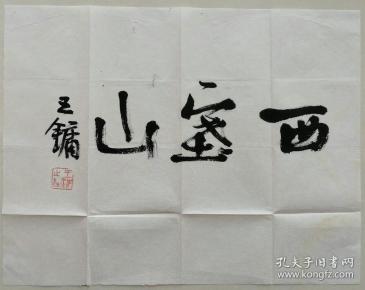 西塞山
王鏞
孔夫子旧书网
www.kongfz.com